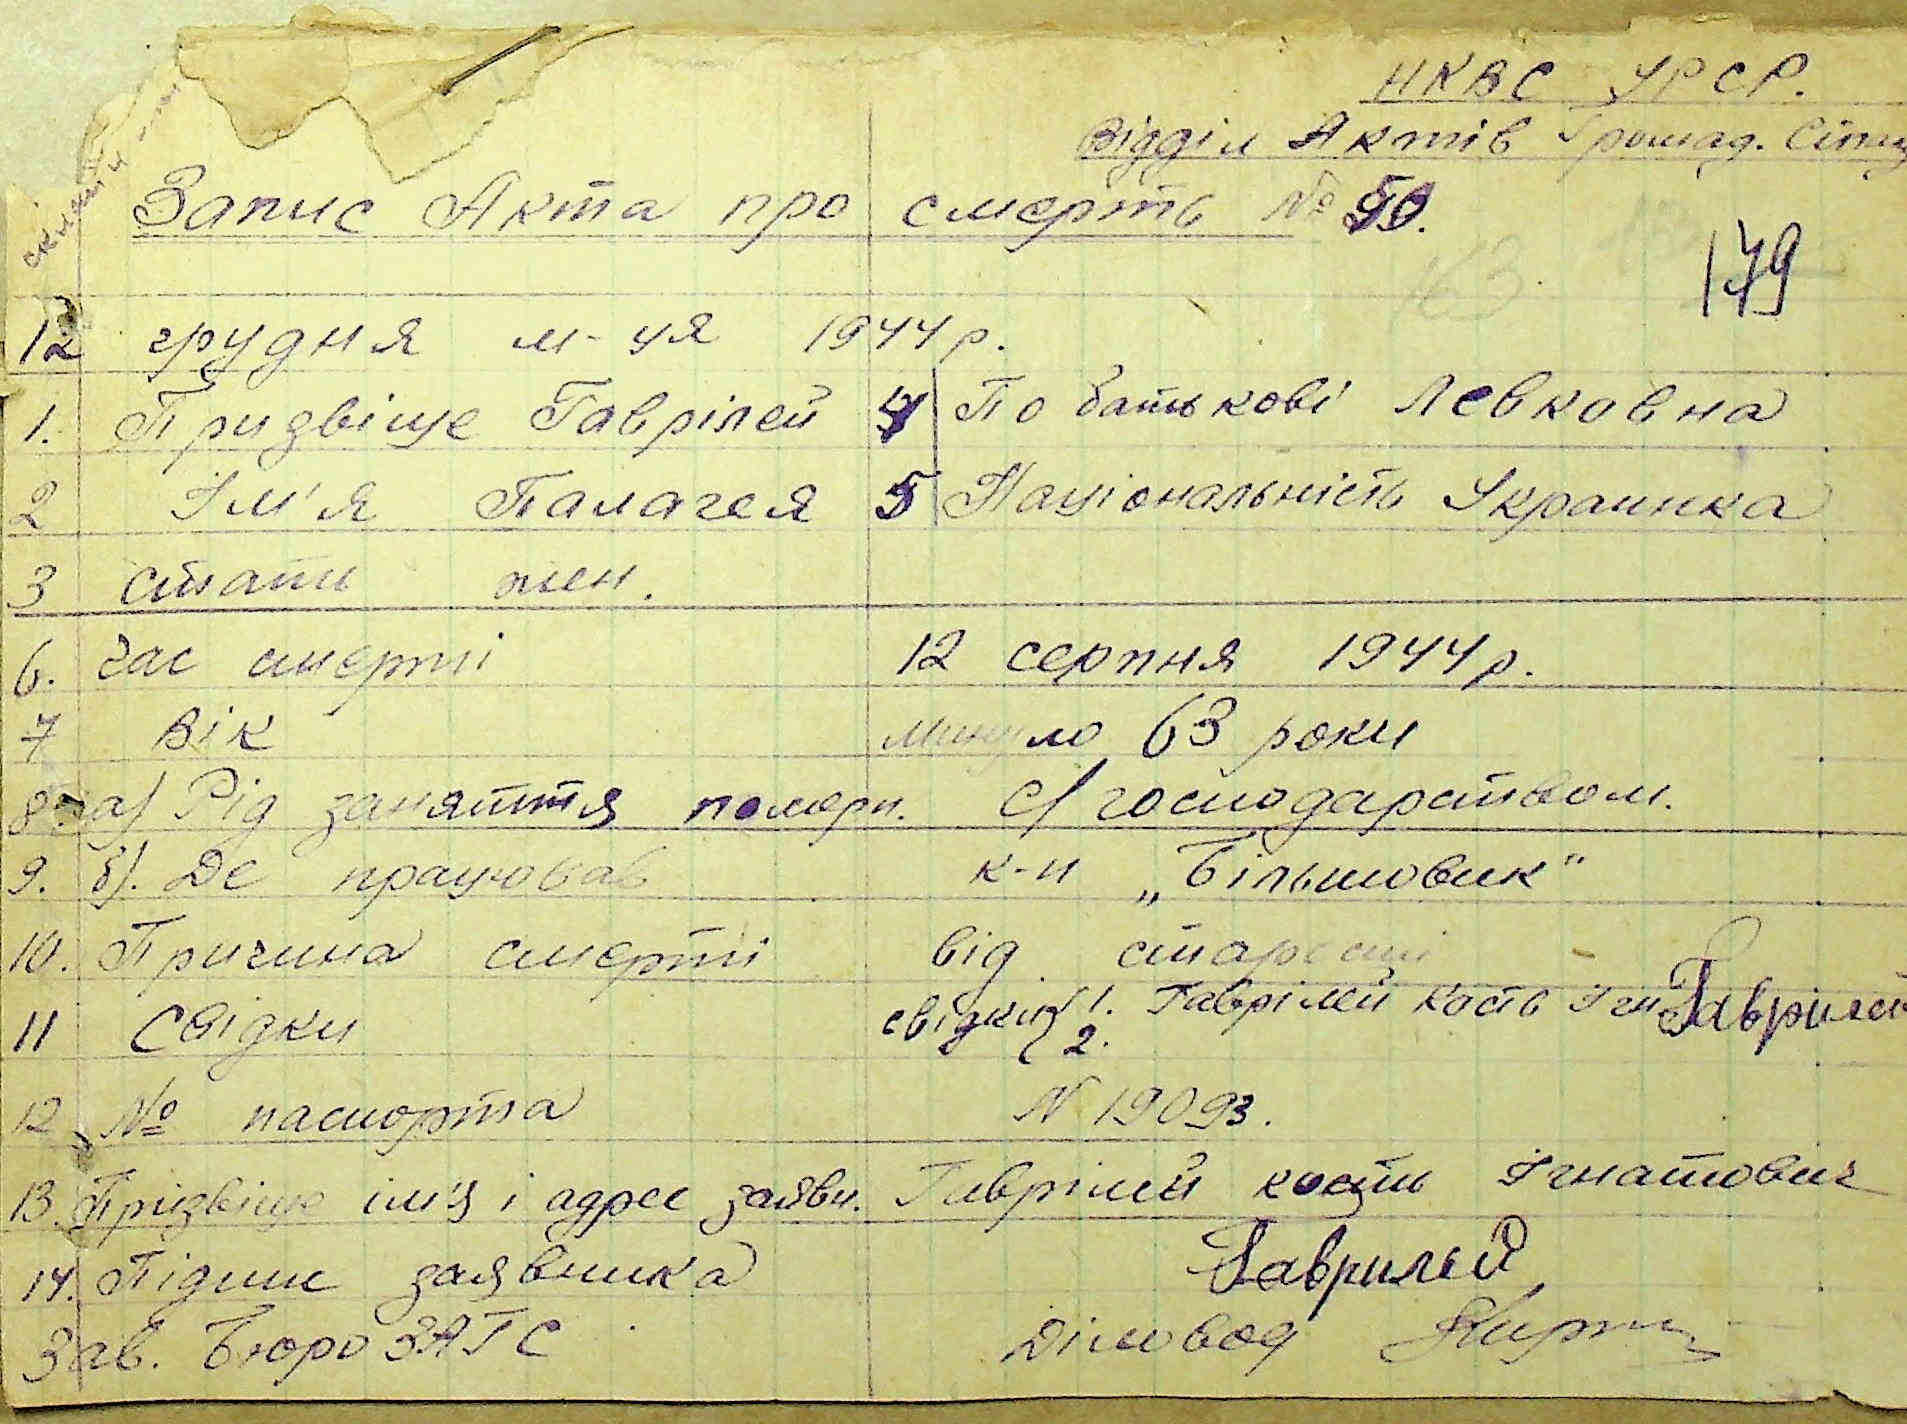 НКВС УРСР.
Відділ Актів Громад.
Запис Акта про смерть №
179
12 грудня м-ця 1944 р.
1. Призвіще Гаврілей 4 По батькові Левковна
2 Ім'я Палагея 5 Національність Украинка
3 стать жен.
6. Час смерті 12 серпня 1944 р.
7 Вік минуло 63 роки
8. а) Рід заняття померл. с/господарством.
9. б). Де працював к-п „Більшовик“
10. Причина смерті від старости
11 Свідки свідки { 1. Гаврілей Кость Ігн Гаврилей
2.
12 № паспорта N 19093.
13. Прізвіще ім'я і адрес заявн. Гаврілей Кость Ігнатович
14. Підпис заявника Гаврилей
Зав. Бюро ЗАГС Діловод